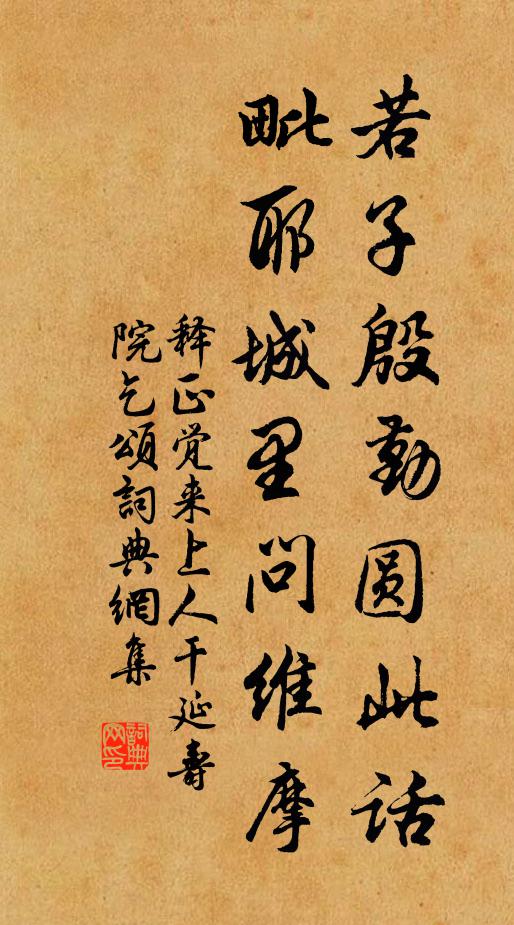 若子殷勤圆此话
毗耶城里问维摩
释正觉来上人干延寿
院乞颂詞典網集
詞典網印